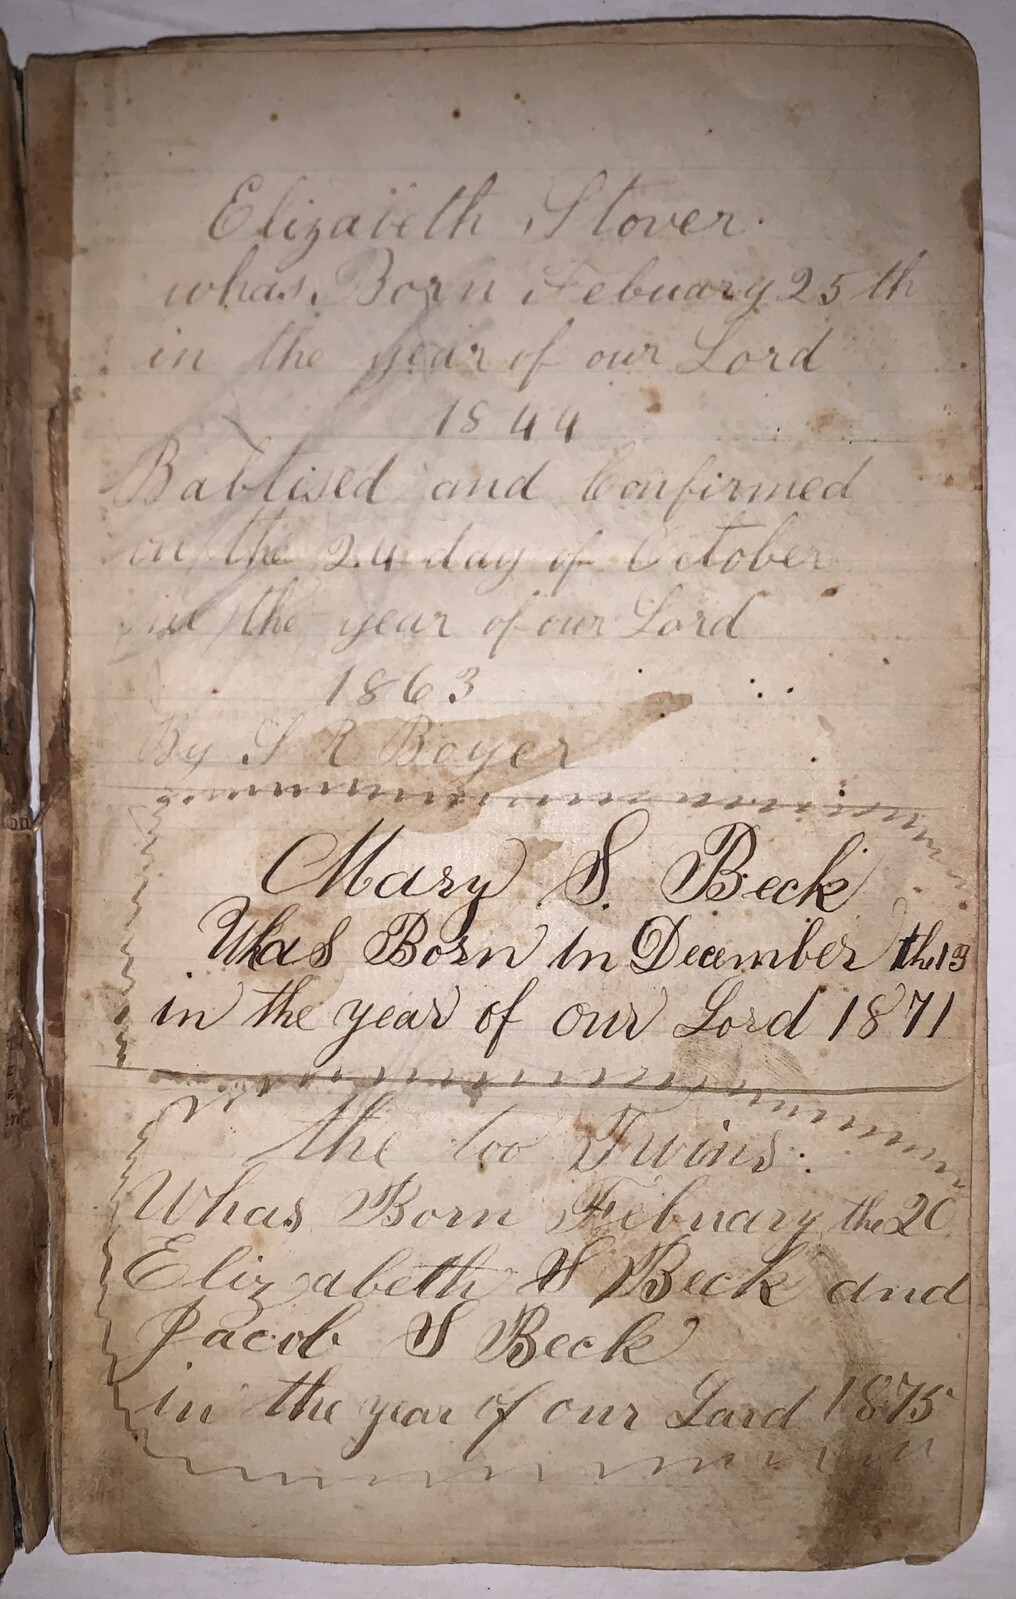 Elizabeth Stover.
whas Born Febuary 25 th
in the year of our Lord
1844
Babtised and Confirmed
on the 24 day of October
in the year of our Lord
1863
By S R Boyer
Mary S. Beck
Whas Born in December th 13
in the year of our Lord 1871
the too Twins.
Whas Born Febuary the 20
Elizabeth S Beck and
Jacob S Beck
in the year of our Lard 1875